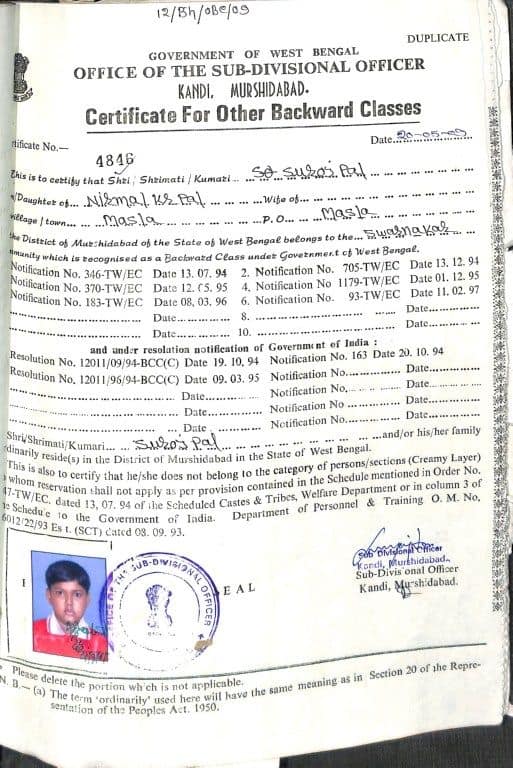 12/Bh/OBC/09
DUPLICATE
GOVERNMENT OF WEST BENGAL
OFFICE OF THE SUB-DIVISIONAL OFFICER
KANDI, MURSHIDABAD.
Certificate For Other Backward Classes
rtificate No.— Date 20-05-09
4846
This is to certify that Shri/ Shrimati / Kumari .. Sri Suroj Pal
/Daughter of... Nirmal Kr Pal ...Wife of...
village / town... Masla ...P.O... Masla
the District of Murshidabad of the State of West Bengal belongs to the... Swarnakar
munity which is recognised as a Backward Class under Government of West Bengal.
Notification No. 346-TW/EC Date 13. 07. 94 2. Notification No. 705-TW/EC Date 13. 12. 94
Notification No. 370-TW/EC Date 12. 05. 95 4. Notification No 1179-TW/EC Date 01. 12. 95
Notification No. 183-TW/EC Date 08, 03. 96 6. Notification No. 93-TW/EC Date 11. 02. 97
Date 8. Date
Date 10. Date
and under resolution notification of Government of India :
Resolution No. 12011/09/94-BCC(C) Date 19. 10, 94 Notification No. 163 Date 20. 10. 94
Resolution No. 12011/96/94-BCC(C) Date 09. 03. 95 Notification No. Date
Date Notification No. Date
Date Notification No Date
Date Notification No. Date
Shri/Shrimati/Kumari... Suroj Pal ...and/or his/her family
rdinarily reside(s) in the District of Murshidabad in the State of West Bengal.
This is also to certify that he/she does not belong to the category of persons/sections (Creamy Layer)
whom reservation shall not apply as per provision contained in the Schedule mentioned in Order No.
47-TW/EC. dated 13, 07. 94 of the Scheduled Castes & Tribes, Welfare Department or in column 3 of
e Schedule to the Government of India. Department of Personnel & Training O. M. No,
6012/22/93 Est. (SCT) dated 08. 09. 93.
Sub Divisional Officer
Kandi, Murshidabad.
Sub-Divisional Officer
Kandi, Murshidabad.
EAL
OFFICE OF THE SUB-DIVISIONAL OFFICER
Please delete the portion which is not applicable.
N. B.— (a) The term 'ordinarily' used here will have the same meaning as in Section 20 of the Repre-
sentation of the Peoples Act. 1950.